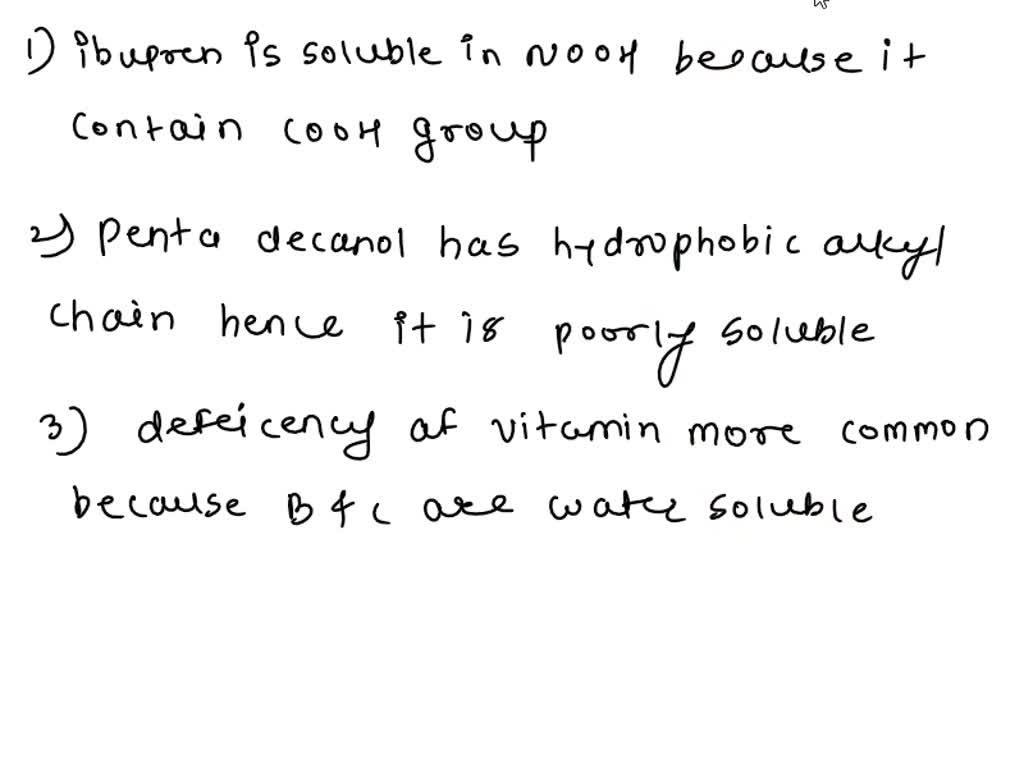 1) ibupren is soluble in NOOH because it
contain COOH group
2) penta decanol has hydrophobic alkyl
chain hence it is poorly soluble
3) defeicency of vitamin more common
because B & C are water soluble